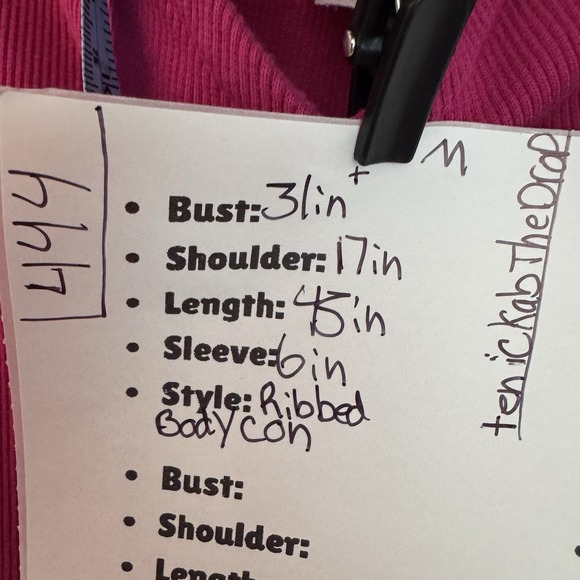 444
M
tenickabTheDrop
• Bust: 31in+
• Shoulder: 17in
• Length: 45in
• Sleeve: 6in
• Style: Ribbed
BodyCon
• Bust:
• Shoulder:
• Length